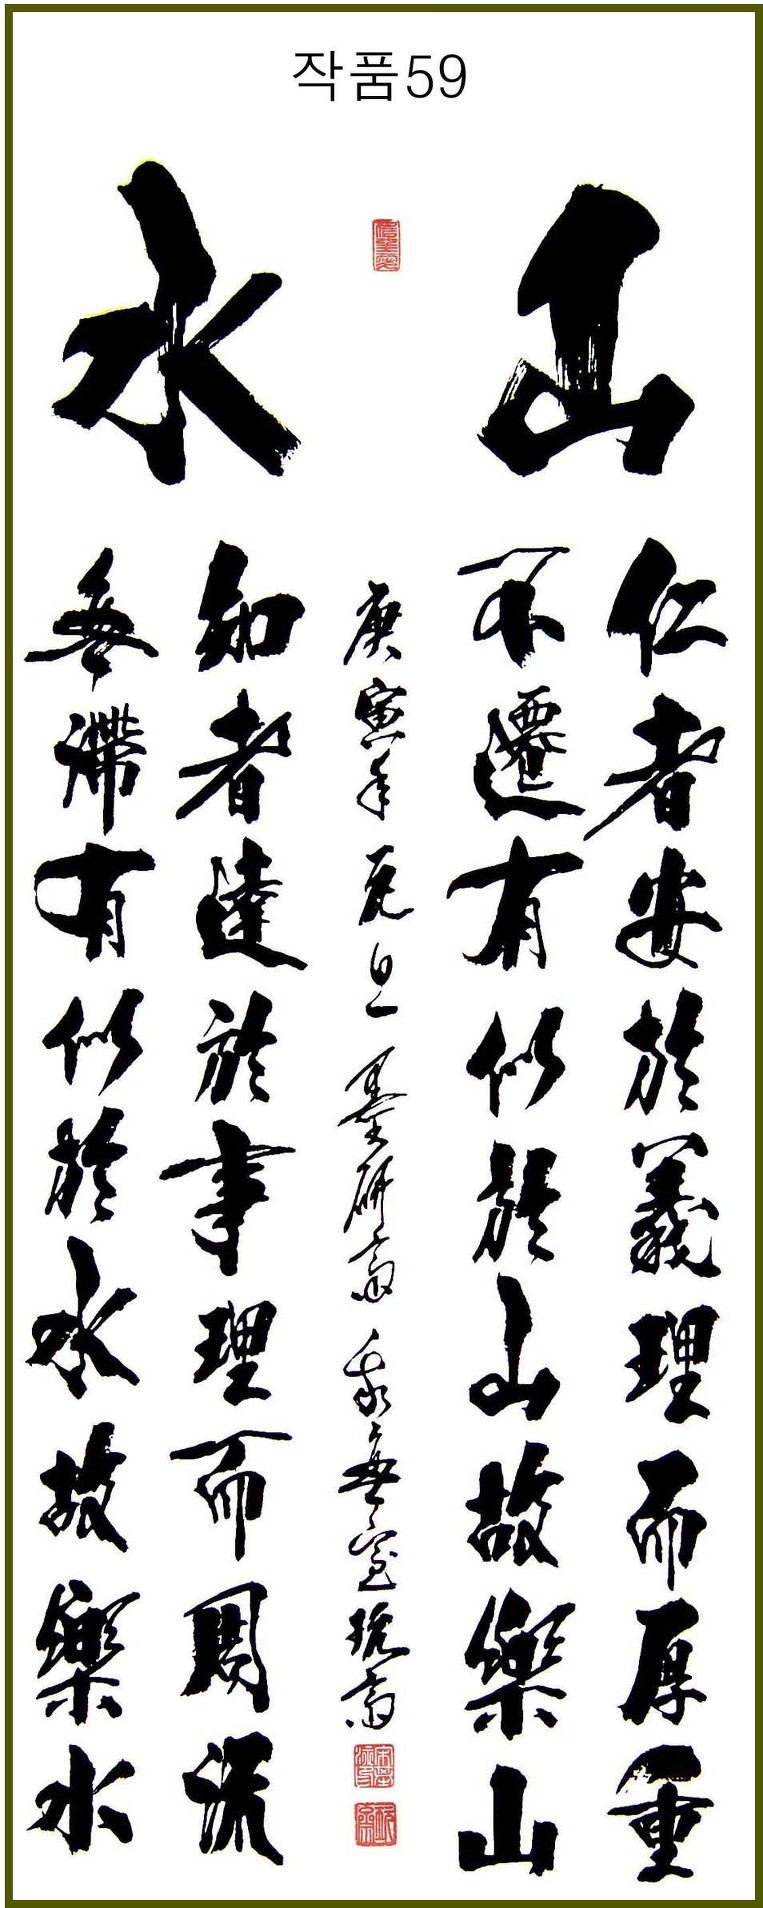 작품59
山水
仁者安於義理而厚重
不遷有似於山故樂山
知者達於事理而周流
無滯有似於水故樂水
庚寅年 元旦 墨研齋